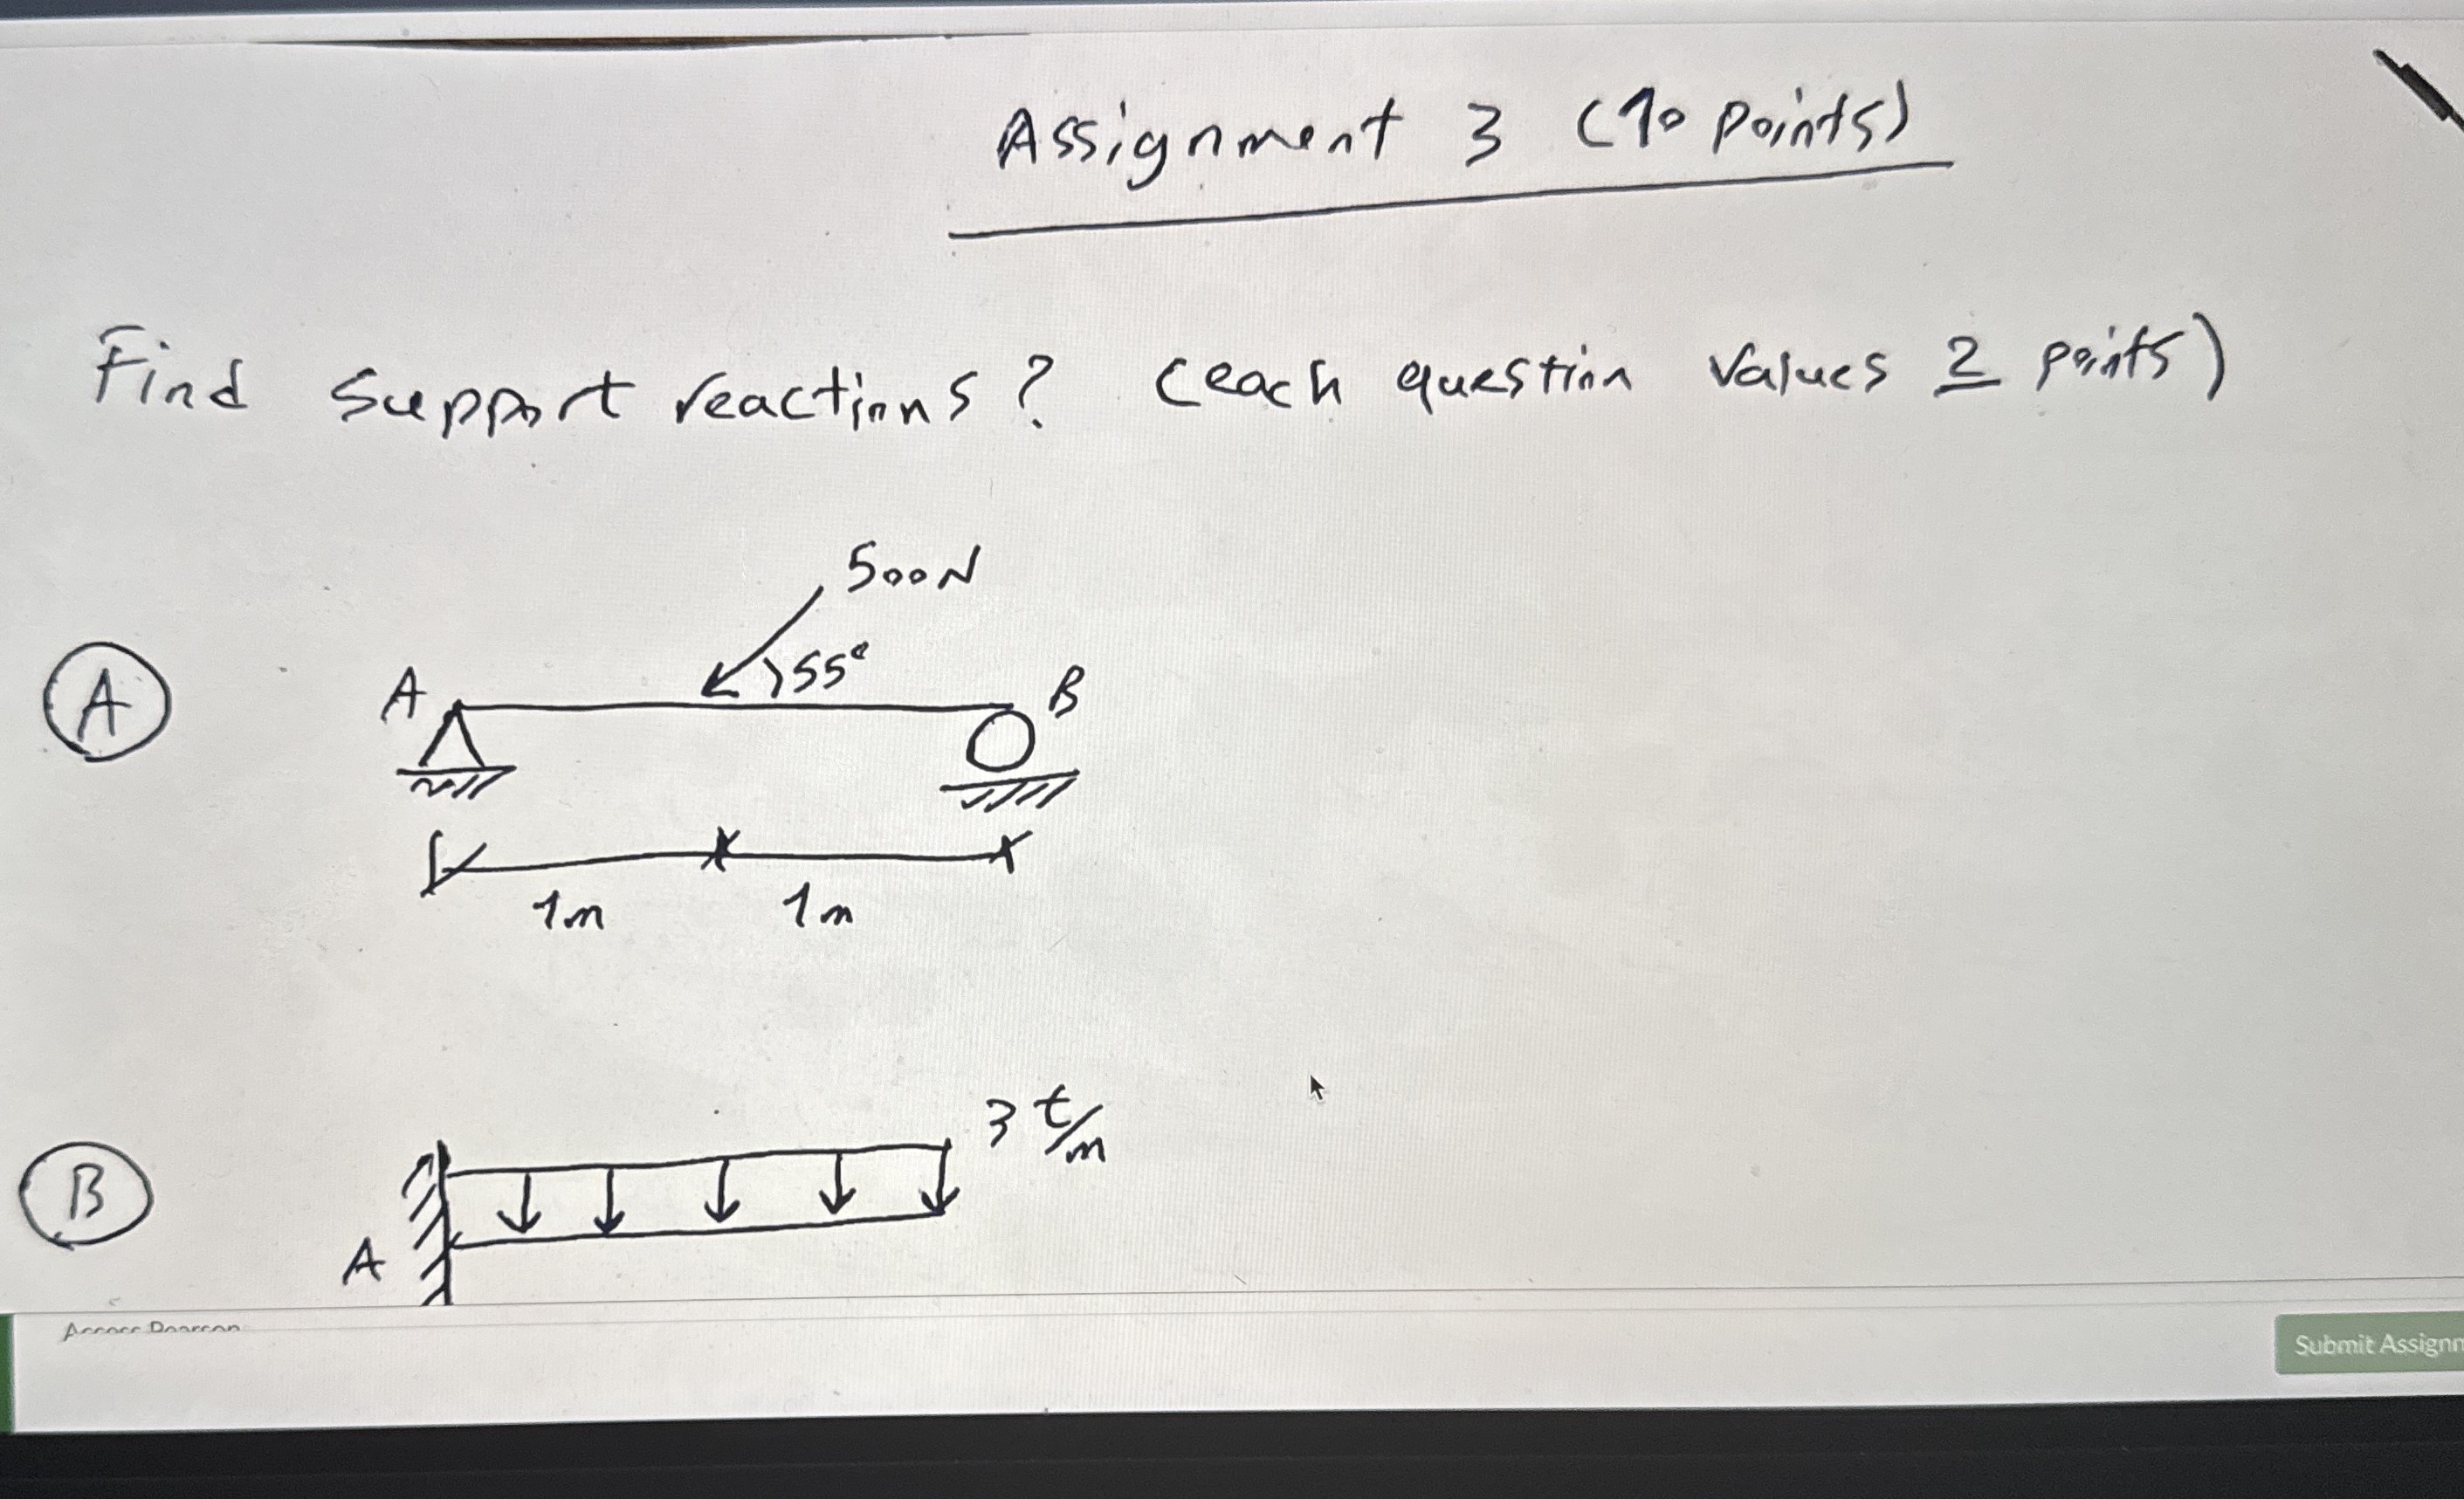 Assignment 3 (10 points)
Find support reactions? (each question values 2 points)
500N
55°
A
A
B
1m
1m
3 t/m
B
A
Submit Assignm